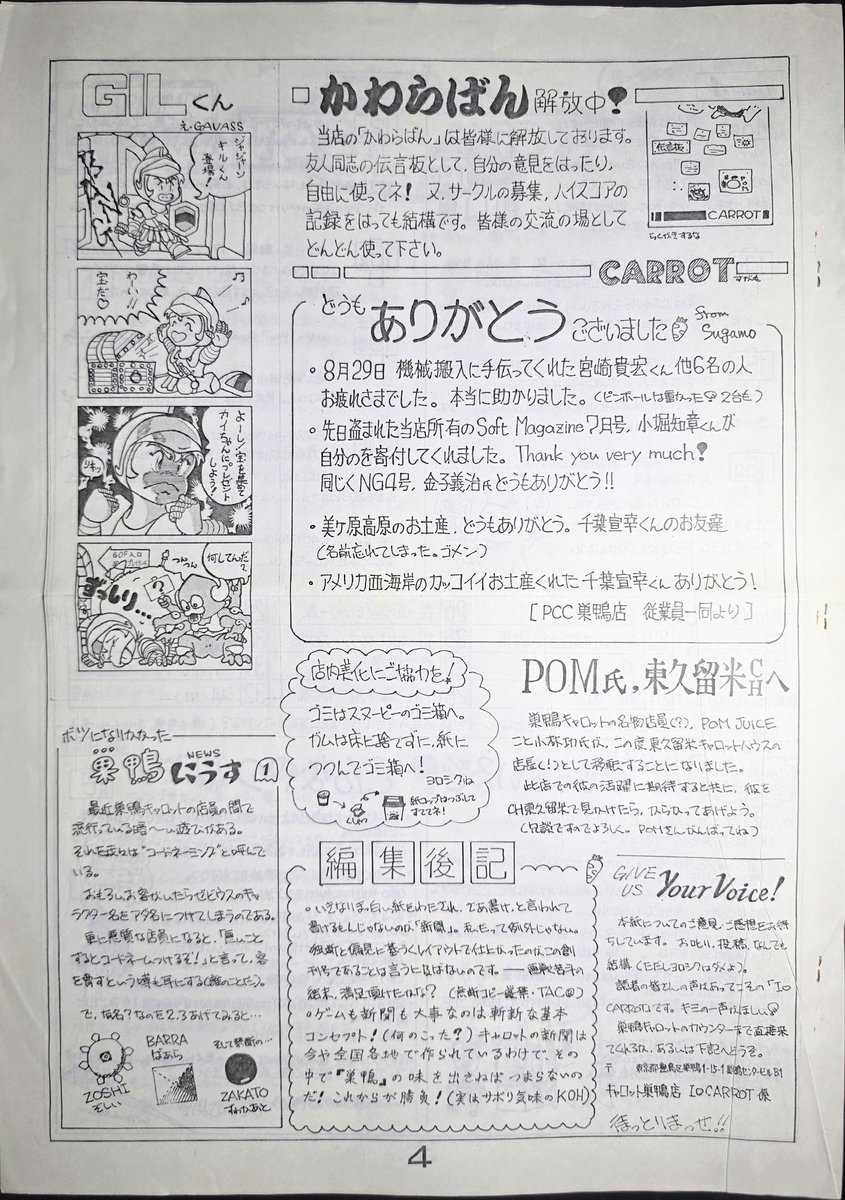 GILくん
え・GAVASS
ジャジャーン
ギルくん
登場!
わーい!!
宝だ♡
よーし!宝を集めて
カイちゃんにプレゼント
しよう!
何してんだ?
つんつん
ずっしり…
かわらばん解放中!
当店の「かわらばん」は皆様に解放しております。
友人同志の伝言板として,自分の意見をはったり,
自由に使ってネ! 又,サークルの募集,ハイスコアの
記録をはっても結構です。皆様の交流の場として
どんどん使って下さい。
伝言板
CARROT
らくがきするな
CARROT すがも
どうも ありがとう ございました from Sugamo
・8月29日 機械搬入に手伝ってくれた宮崎貴宏くん他6名の人
お疲れさまでした。本当に助かりました。(ピンボールは重かった 2台も)
・先日盗まれた当店所有のSoft Magazine7月号,小堀知章くんが
自分のを寄付してくれました。Thank you very much!
同じくNG4号,金子義治氏どうもありがとう!!
・美ヶ原高原のお土産,どうもありがとう。千葉宣幸くんのお友達
(名前忘れてしまった。ゴメン)
・アメリカ西海岸のカッコイイお土産くれた千葉宣幸くんありがとう!
[PCC巣鴨店 従業員一同より]
店内美化にご協力を!
ゴミはスヌーピーのゴミ箱へ。
ガムは床に捨てずに,紙に
つつんでゴミ箱へ!
ヨロシクね
紙コップはつぶして
すててネ!
POM氏,東久留米CHへ
巣鴨キャロットの名物店員(?),POM JUICE
こと小林功氏が,この度東久留米キャロットハウスの
店長(!)として移転することになりました。
此店での彼の活躍に期待すると共に,彼を
CH東久留米で見かけたら,からかってあげよう。
(冗談ですのでよろしく。POMさんがんばってね)
ボツになりかかった
巣鴨NEWSにうす 1
最近巣鴨キャロットの店員の間で
流行っている暗〜い遊びがある。
それを我々は"コードネーミング"と呼んで
いる。
おもろいお客がいたらゼビウスのキャ
ラクター名をアダ名につけてしまうのである。
更に悪質な店員になると,「悪いこと
するとコードネームつけるぞ!」と言って,客
を脅すという噂も耳にする(誰のことだ)。
で,仮名?なのを2,3あげてみると…
ZOSHI
ぞしい
BARRA
ばあら
そして禁断の…
ZAKATO
編集後記
・いきなりまっ白い紙をわたされ,さあ書け,と言われて
書けるもんじゃないのが,「新聞」。私だって例外じゃない。
独断と偏見に基づくレイアウトで仕上がったのがこの創
刊号であることは言うにおよばないのです。
結末,満足頂けたかな?(無断コピー厳禁・TAC@)
・ゲームも新聞も大事なのは斬新な基本
コンセプト!(何のこった?)キャロットの新聞は
今や全国各地で作られているわけで,その
中で『巣鴨』の味を出さねばつまらないの
だ!これからが勝負!(実はサボリ気味のKOH)
GIVE US Your Voice!
本紙についてのご意見・ご感想をお待
ちしています。おたより,投稿,なんでも
結構(ただしヨロシクはダメよ)。
読者の皆さんの声はあってこその「IO
CARROT」です。キミの一声がほしい
巣鴨キャロットのカウンターまで直接来
てくれるか,あるいは下記へどうぞ。
〒 東京都豊島区巣鴨1-15-1 宮崎センタービルB1
キャロット巣鴨店 IO CARROT 係
待っとりまっせ!!
4